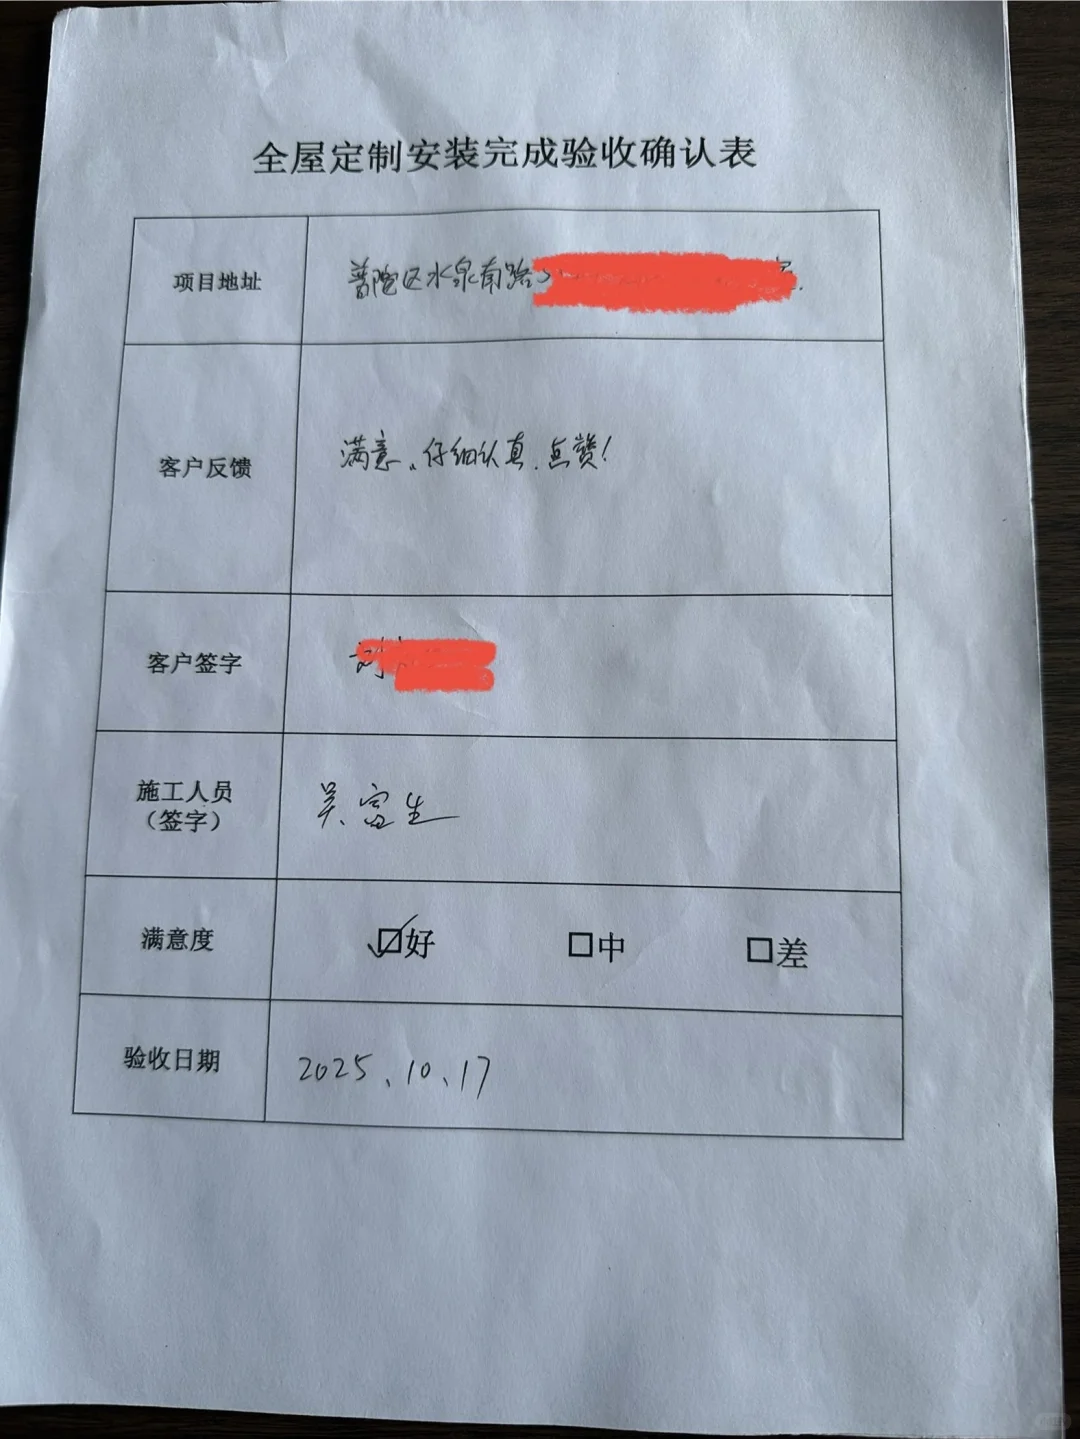 全屋定制安装完成验收确认表
项目地址
普陀区水泉南路
客户反馈
满意、仔细认真、点赞！
客户签字
施工人员
（签字）
吴富生
满意度
☑好 □中 □差
验收日期
2025、10、17